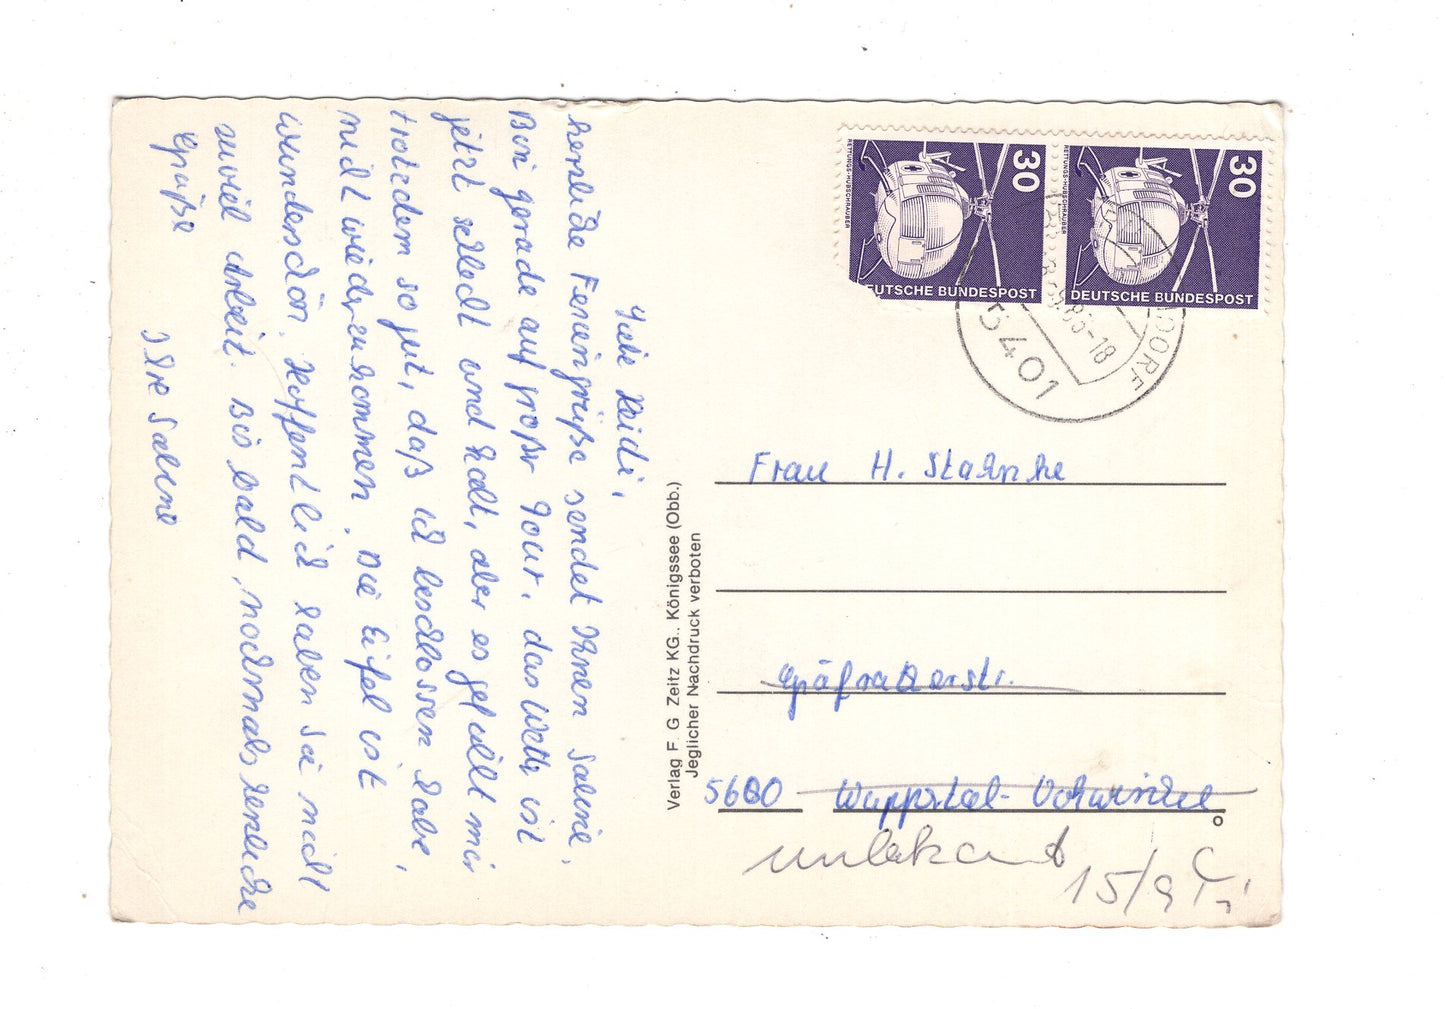 Liebe Heidi,
herzliche Feriengrüße sendet Ihnen Sabine.
Bin gerade auf großer Tour, das Wetter ist
jetzt schlecht und kalt, aber es gefällt mir
trotzdem so gut, daß ich beschlossen habe,
nicht wiederzukommen. Die Eifel ist
wunderschön. Hoffentlich haben Sie nicht
zuviel Arbeit. Bis bald, nochmals herzliche
Grüße
Ihre Sabine
Verlag F. G. Zeitz KG., Königssee (Obb.)
Jeglicher Nachdruck verboten
30
RETTUNGS-HUBSCHRAUBER
DEUTSCHE BUNDESPOST
30
RETTUNGS-HUBSCHRAUBER
DEUTSCHE BUNDESPOST
5401
DORF
-18
Frau H. Stahnke
Gräfratherstr.
5600 Wuppertal-Vohwinkel
unbekannt
15/9